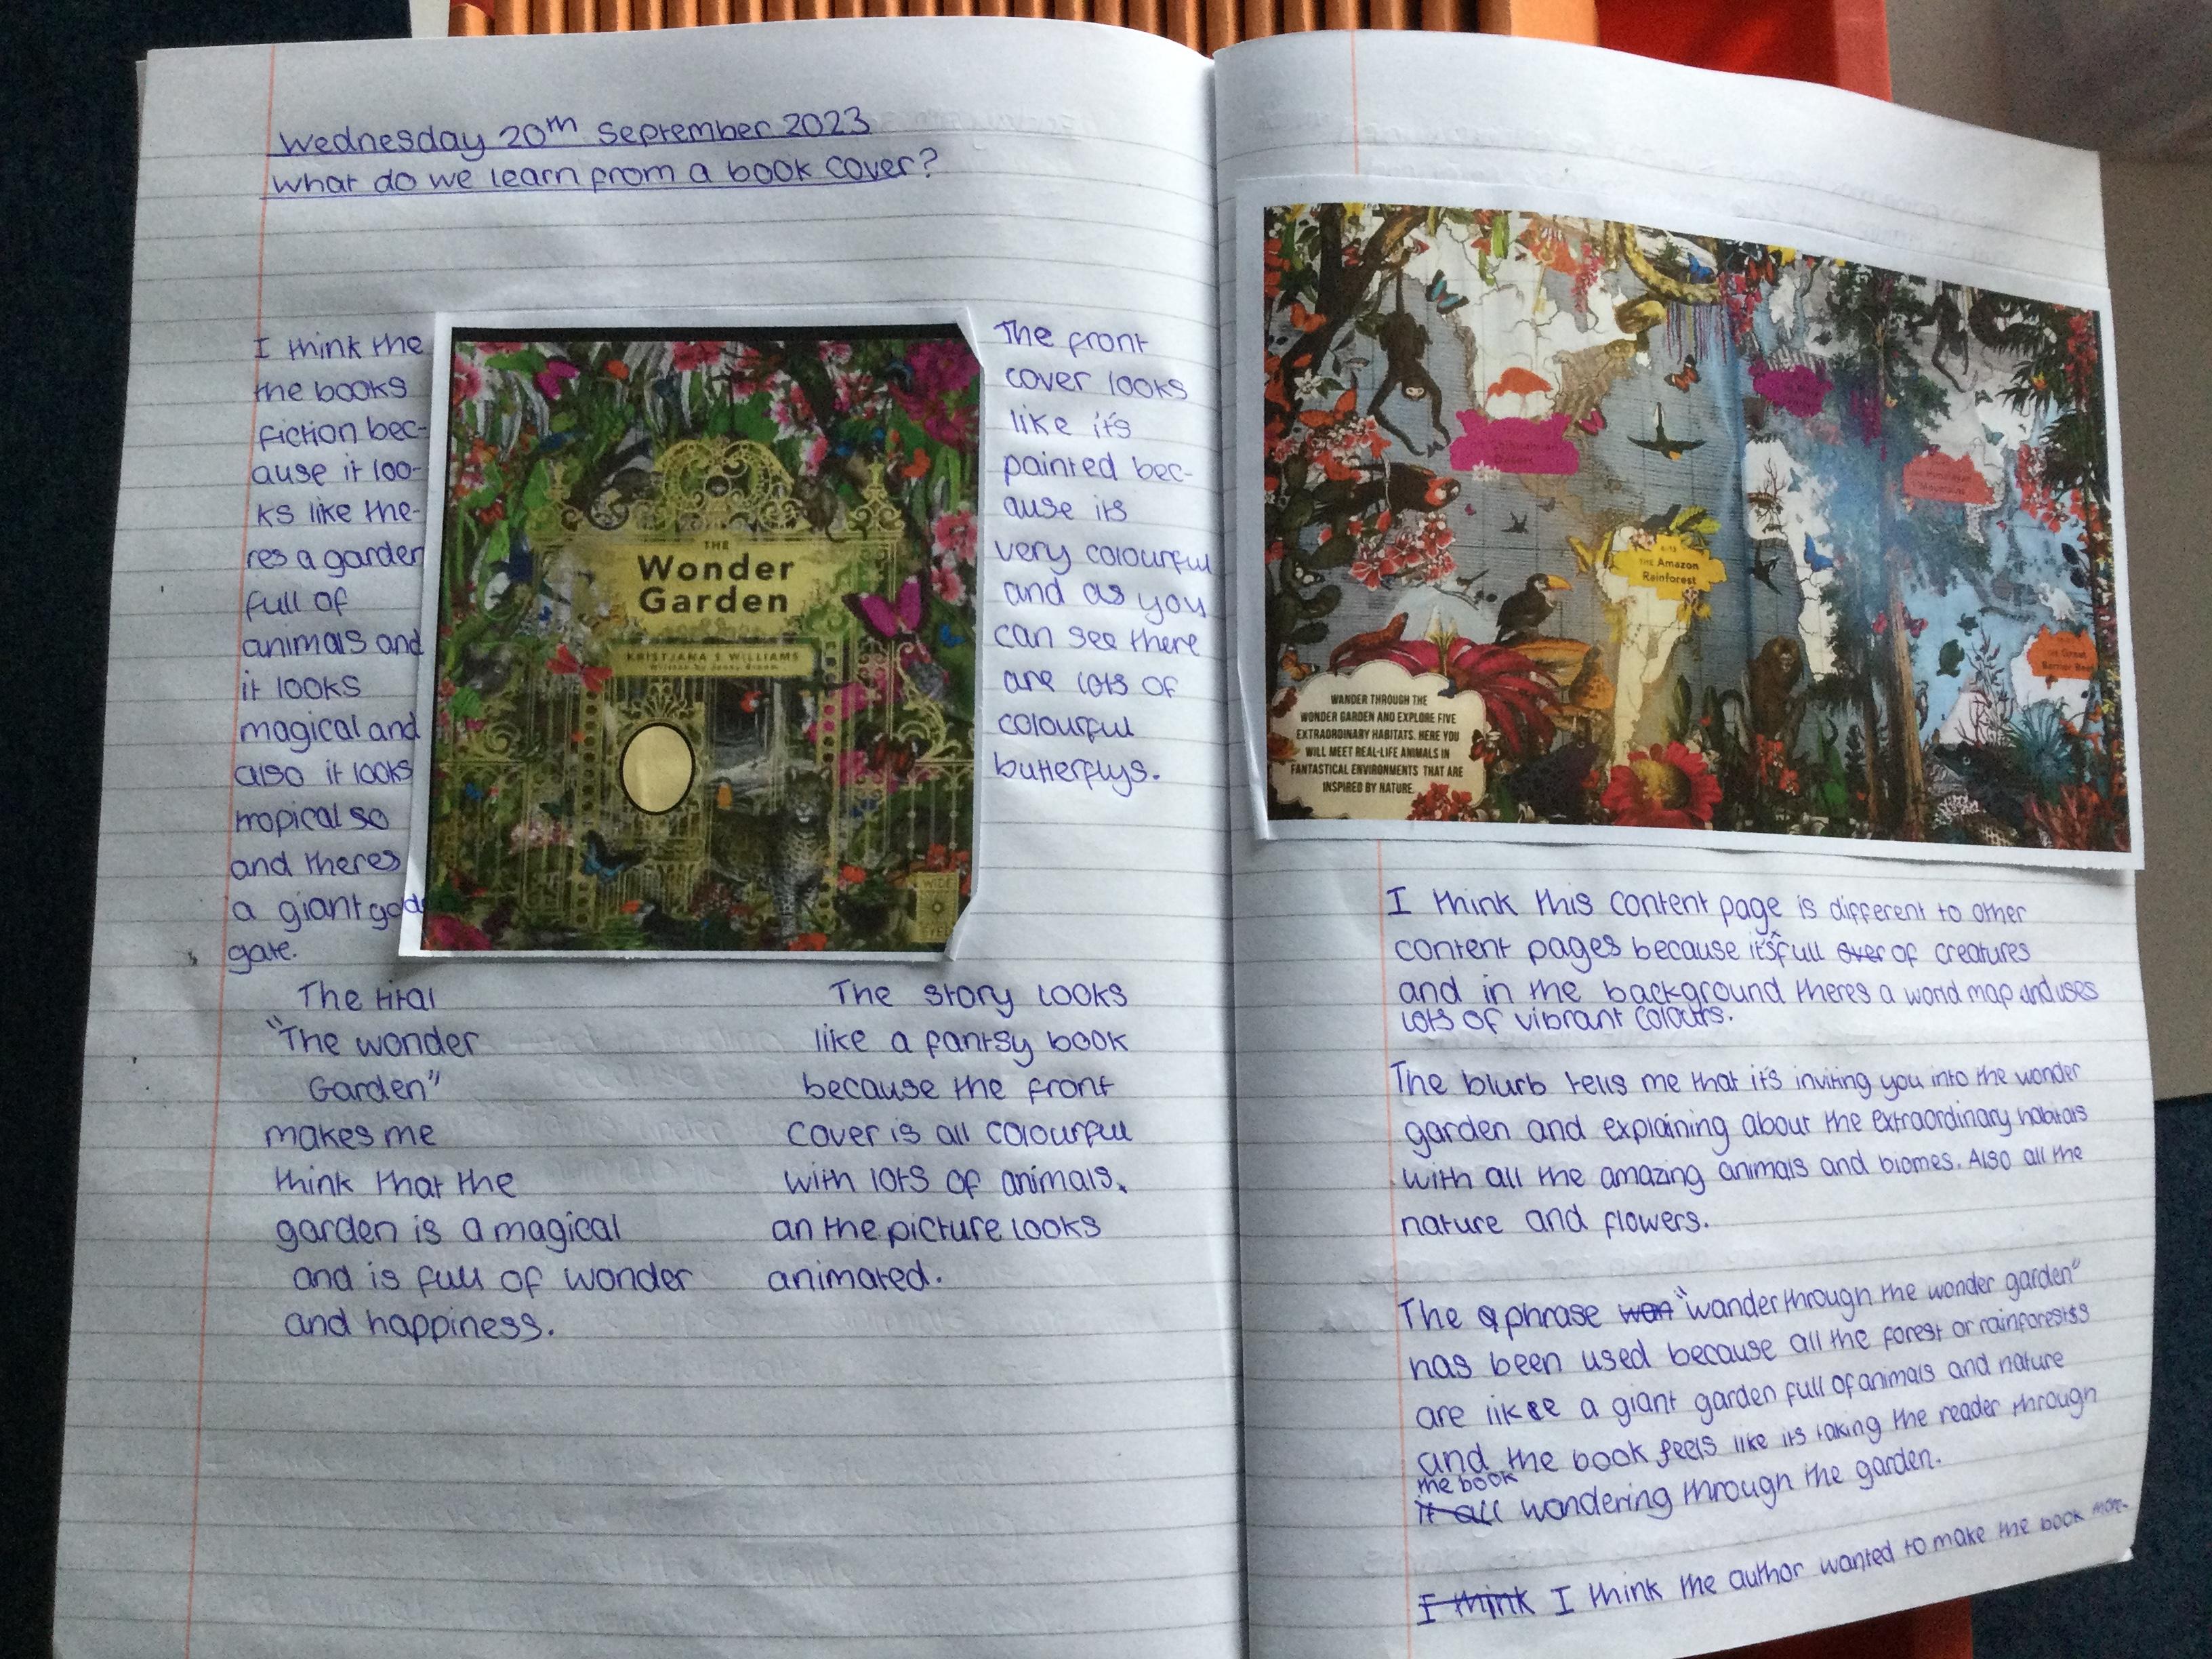 Wednesday 20th September 2023
What do we learn from a book cover?
I think the
the books
fiction bec-
ause it loo-
ks like the-
res a garden
full of
animals and
it looks
magical and
also it looks
tropical so
and theres
a giant
gate.
THE
Wonder
Garden
KRISTJANA S WILLIAMS
Written by Jenny Broom
WIDE
EYED
The front
cover looks
like it's
painted bec-
ause its
very colourful
and as you
can see there
are lots of
colourful
butterflys.
The tital
"The wonder
Garden"
makes me
think that the
garden is a magical
and is full of wonder
and happiness.
The story looks
like a fantsy book
because the front
cover is all colourful
with lots of animals.
an the picture looks
animated.
Desert
THE Amazon
Rainforest
Himalayan
Mountains
THE Great
Barrier Reef
WANDER THROUGH THE
WONDER GARDEN AND EXPLORE FIVE
EXTRAORDINARY HABITATS. HERE YOU
WILL MEET REAL-LIFE ANIMALS IN
FANTASTICAL ENVIRONMENTS THAT ARE
INSPIRED BY NATURE.
I think this content page is different to other
content pages because it's full over of creatures
and in the background theres a world map and uses
lots of vibrant colours.
The blurb tells me that it's inviting you into the wonder
garden and explaining about the extraordinary habitats
with all the amazing animals and biomes. Also all the
nature and flowers.
The phrase wan "wander through the wonder garden"
has been used because all the forest or rainforests
are like a giant garden full of animals and nature
and the book feels like its taking the reader through
the book
it all wondering through the garden.
I think I think the author wanted to make the book more